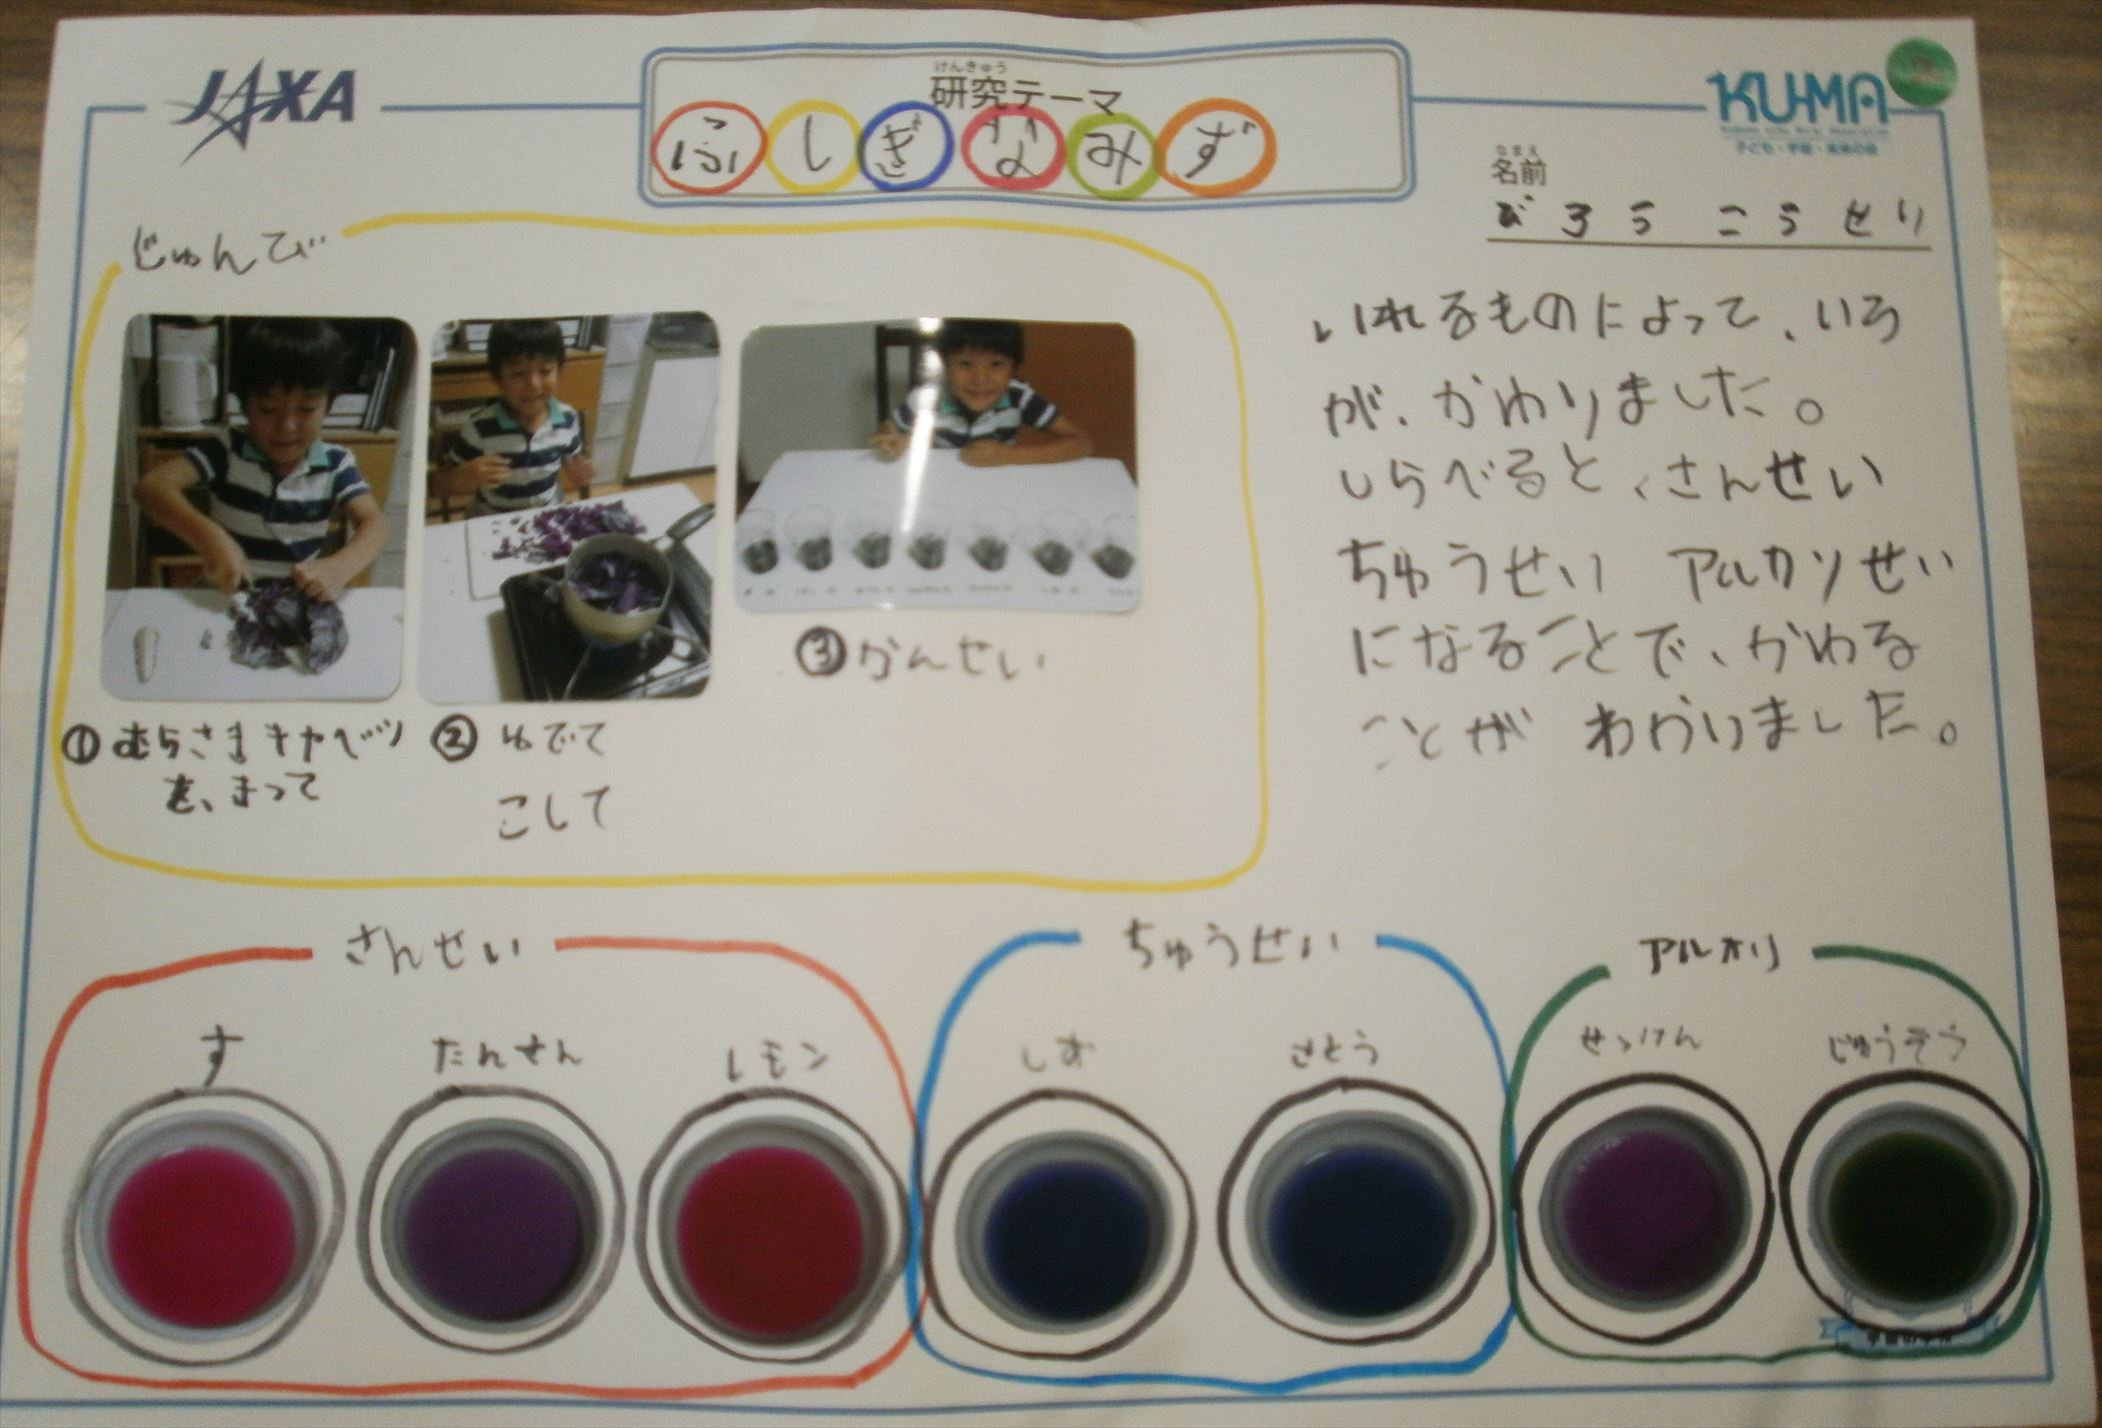 JAXA
けんきゅう
研究テーマ
ふしぎなみず
KU-MA
子ども・宇宙・未来の会
なまえ
名前
びろう こうせい
じゅんび
①むらさきキャベツ
を、きって
②ゆでて
こして
③かんせい
いれるものによって、いろ
が、かわりました。
しらべると、さんせい
ちゅうせい アルカリせい
になることで、かわる
ことが わかりました。
さんせい
す
たんさん
レモン
ちゅうせい
しお
さとう
アルカリ
せっけん
じゅうそう